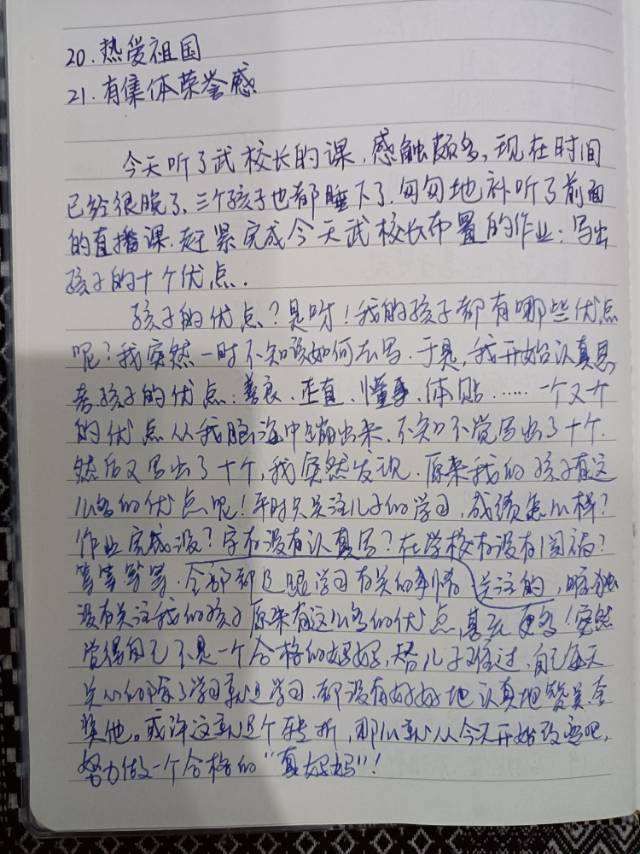 20.热爱祖国
21.有集体荣誉感
今天听了武校长的课,感触颇多,现在时间
已经很晚了,三个孩子也都睡下了,匆匆地补听了前面
的直播课,赶紧完成今天武校长布置的作业:写出
孩子的十个优点.
孩子的优点?是呀!我的孩子都有哪些优点
呢?我突然一时不知该如何去写.于是,我开始认真思
考孩子的优点:善良、正直、懂事、体贴……一个又一个
的优点从我脑海中蹦出来,不知不觉写出了十个.
然后又写出了十个,我突然发现,原来我的孩子有这
么多的优点呢!平时只关注儿子的学习,成绩怎么样?
作业完成没?字有没有认真写?在学校有没有闯祸?
等等等等,全部都是跟学习有关的事情关注的,唯独
没有关注我的孩子原来有这么多的优点,甚至更多!突然
觉得自己不是一个合格的妈妈,替儿子难过,自己每天
关心的除了学习就是学习,都没有好好地认真地赞美夸
奖他。或许这就是个转折,那么就从今天开始改变吧,
努力做一个合格的“真妈妈”!